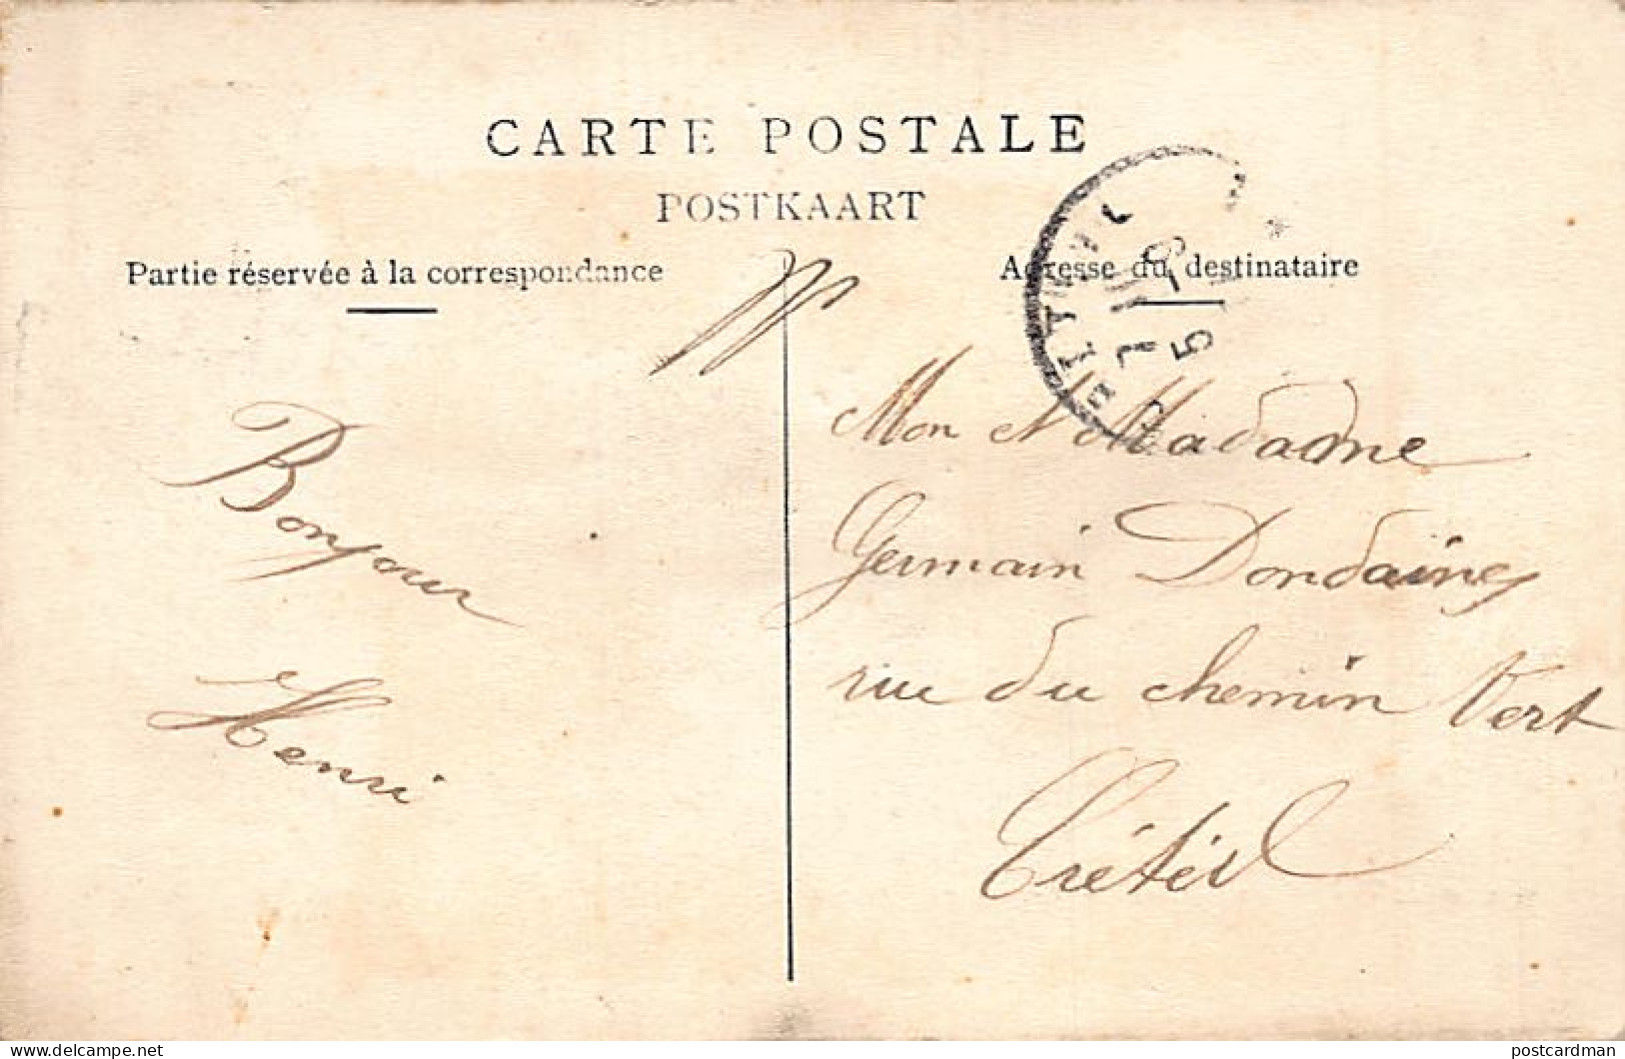 CARTE POSTALE
POSTKAART
Partie réservée à la correspondance
Adresse du destinataire
Bonjour
Henri
Mon et Madame
Germain Dondaines
rue du chemin Vert
Créteil
www.delcampe.net
postcardman